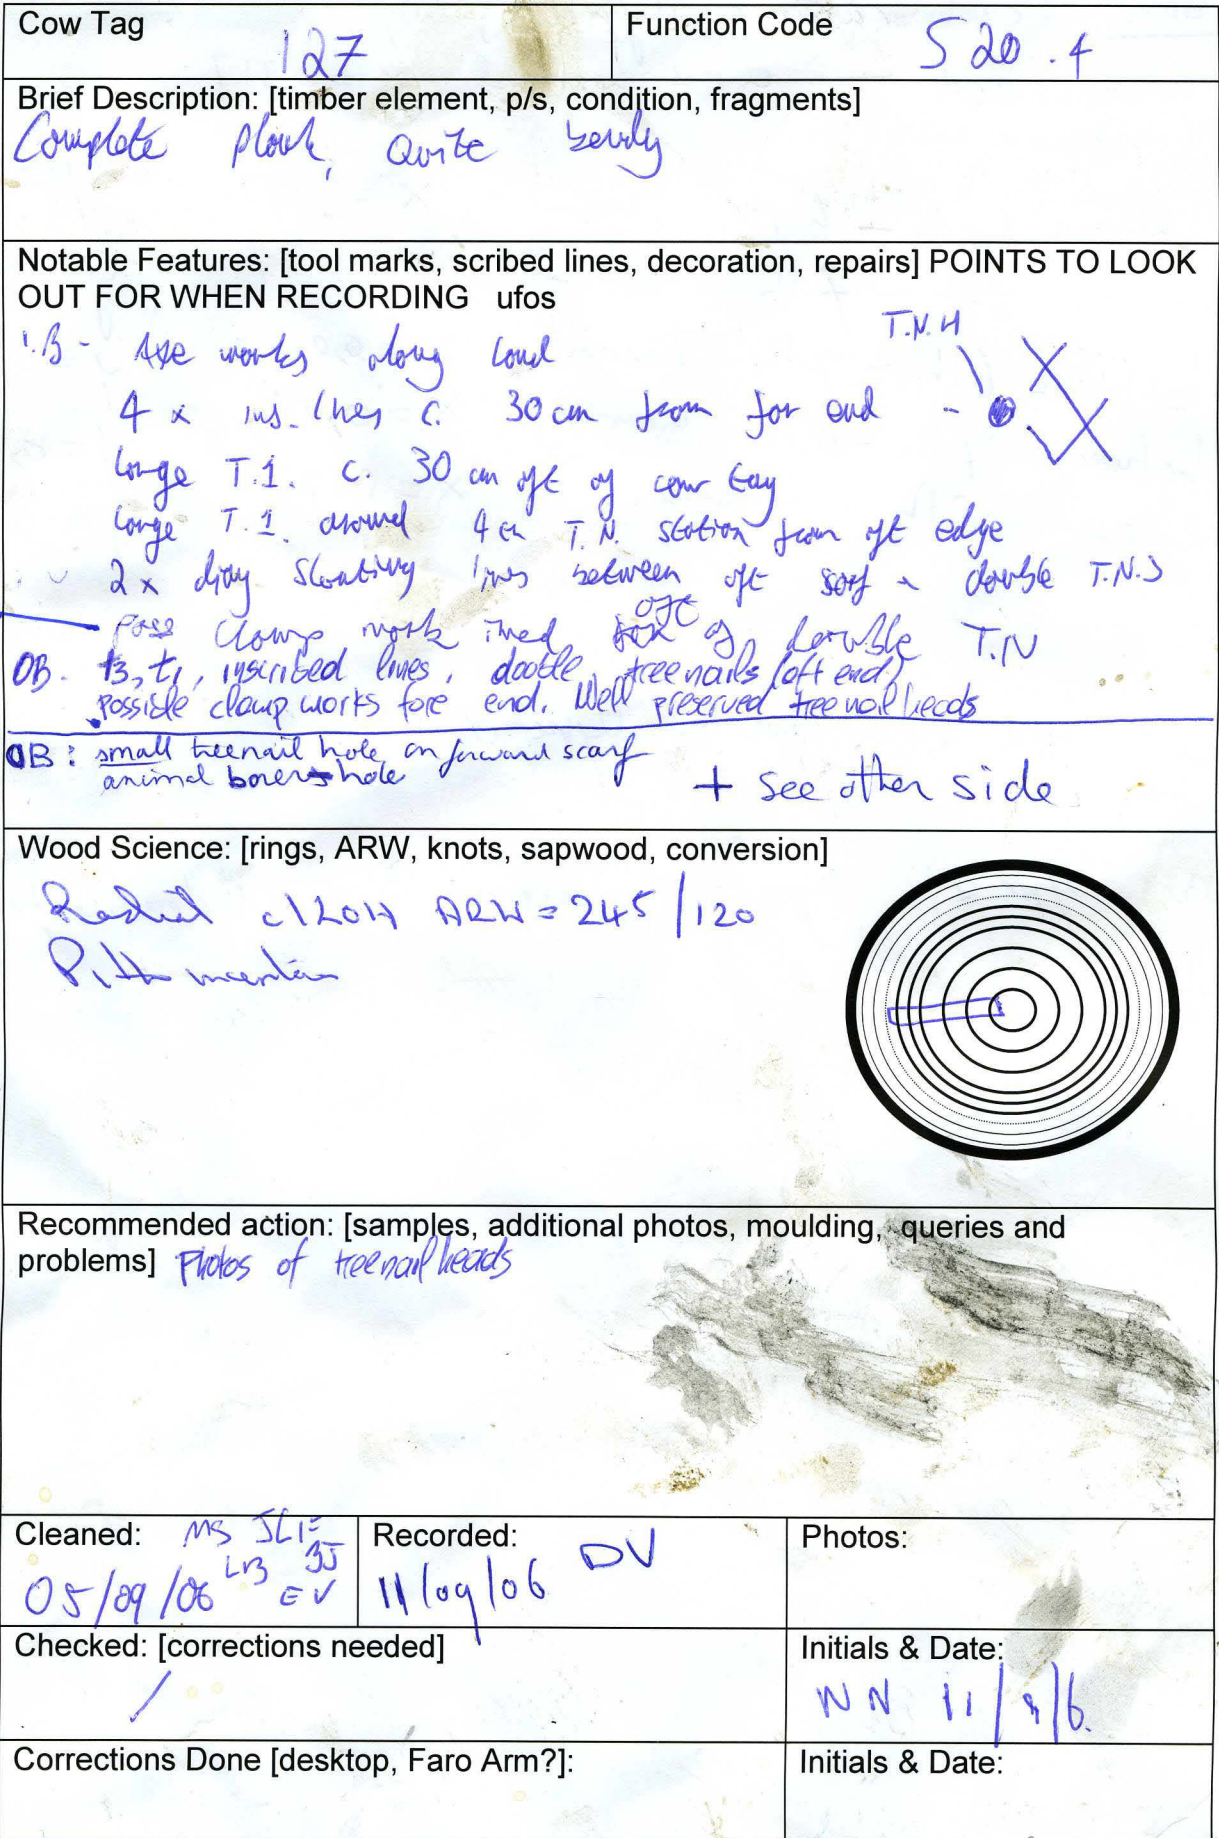 Cow Tag
127
Function Code
S 20 . 4
Brief Description: [timber element, p/s, condition, fragments]
Complete plank, Quite bendy
Notable Features: [tool marks, scribed lines, decoration, repairs] POINTS TO LOOK
OUT FOR WHEN RECORDING ufos
T.N.H
I.B - Axe marks along land
4 x ins. lines c. 30 cm from for end -
large T.1. c. 30 cm aft of cow tag
large T.1. around 4th T.N. station from aft edge
2 x diag slanting lines between aft scarf double T.N.s
Poss clamp mark aft of double T.N
OB. t3, t1, inscribed lines, double treenails (aft end)
possible clamp works fore end. Well preserved treenail heads
OB: small treenail hole on forward scarf
animal borer hole
+ see other side
Wood Science: [rings, ARW, knots, sapwood, conversion]
Radial ARW = 245 / 120
Pith
Recommended action: [samples, additional photos, moulding, queries and
problems] Photos of treenail heads
Cleaned: MS
LB BJ
05/09/06 EV
Recorded: DV
11/09/06
Photos:
Checked: [corrections needed]
/
Initials & Date:
NN 11/9/6.
Corrections Done [desktop, Faro Arm?]:
Initials & Date: